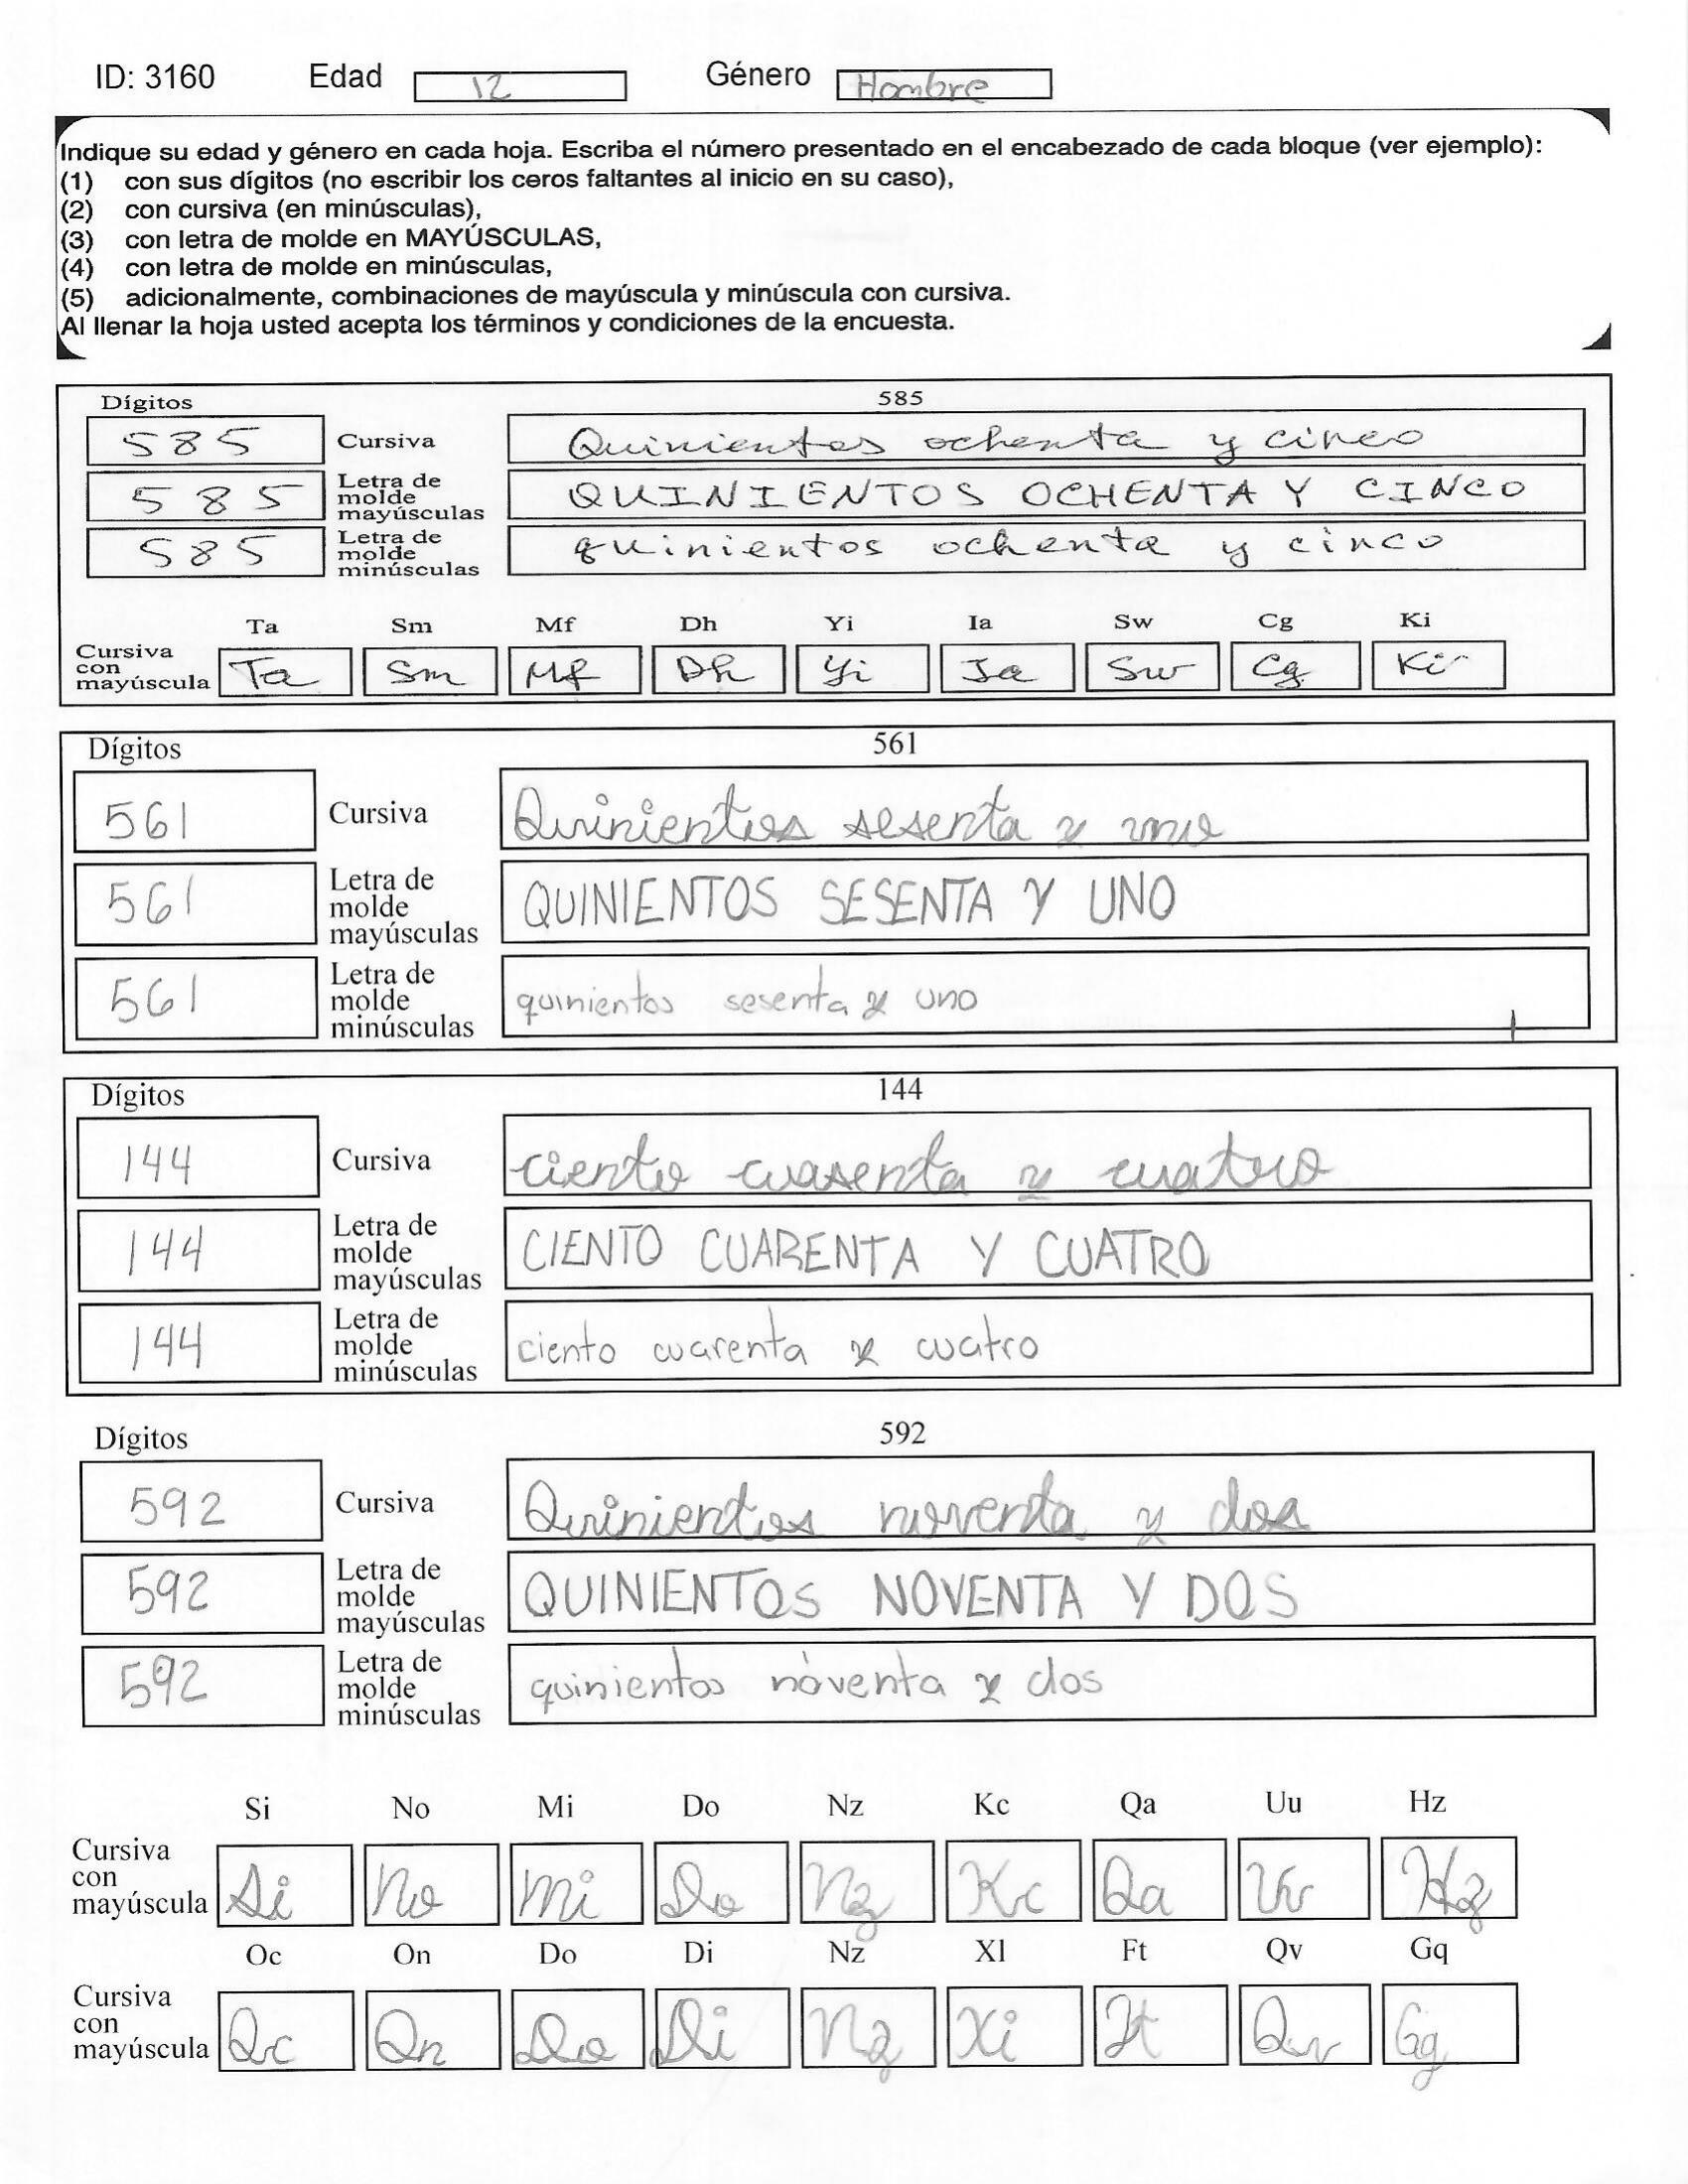 ID: 3160 Edad 12 Género Hombre
Indique su edad y género en cada hoja. Escriba el número presentado en el encabezado de cada bloque (ver ejemplo):
(1) con sus dígitos (no escribir los ceros faltantes al inicio en su caso),
(2) con cursiva (en minúsculas),
(3) con letra de molde en MAYÚSCULAS,
(4) con letra de molde en minúsculas,
(5) adicionalmente, combinaciones de mayúscula y minúscula con cursiva.
Al llenar la hoja usted acepta los términos y condiciones de la encuesta.
Dígitos 585
585 Cursiva Quinientos ochenta y cinco
585 Letra de molde mayúsculas QUINIENTOS OCHENTA Y CINCO
585 Letra de molde minúsculas quinientos ochenta y cinco
Ta Sm Mf Dh Yi Ia Sw Cg Ki
Cursiva con mayúscula Ta Sm Mf Dh Yi Ia Sw Cg Ki
Dígitos 561
561 Cursiva Quinientos sesenta y uno
561 Letra de molde mayúsculas QUINIENTOS SESENTA Y UNO
561 Letra de molde minúsculas quinientos sesenta y uno
Dígitos 144
144 Cursiva ciento cuarenta y cuatro
144 Letra de molde mayúsculas CIENTO CUARENTA Y CUATRO
144 Letra de molde minúsculas ciento cuarenta y cuatro
Dígitos 592
592 Cursiva Quinientos noventa y dos
592 Letra de molde mayúsculas QUINIENTOS NOVENTA Y DOS
592 Letra de molde minúsculas quinientos noventa y dos
Si No Mi Do Nz Kc Qa Uu Hz
Cursiva con mayúscula Si No Mi Do Nz Kc Qa Uu Hz
Oc On Do Di Nz Xl Ft Qv Gq
Cursiva con mayúscula Oc On Do Di Nz Xi Ft Qv Gg